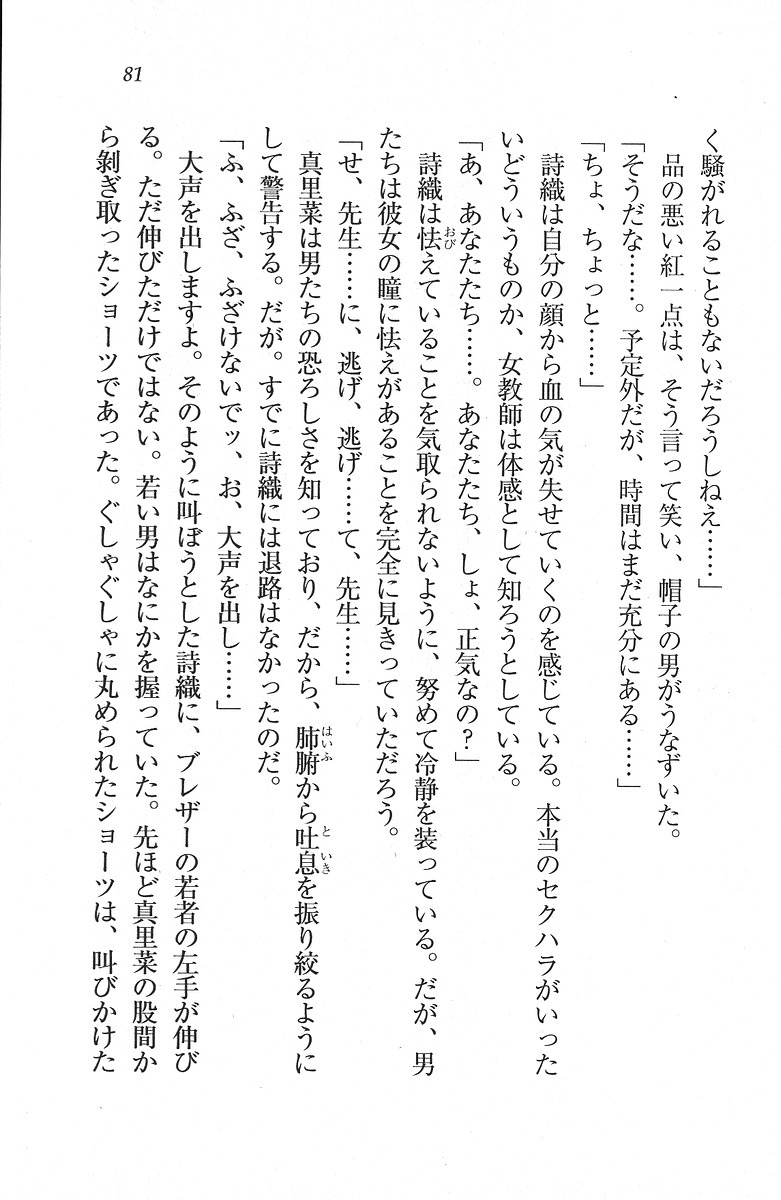 81
く騒がれることもないだろうしねえ……」
品の悪い紅一点は、そう言って笑い、帽子の男がうなずいた。
「そうだな……。予定外だが、時間はまだ充分にある……」
「ちょ、ちょっと……」
詩織は自分の顔から血の気が失せていくのを感じている。本当のセクハラがいった
いどういうものか、女教師は体感として知ろうとしている。
「あ、あなたたち……。あなたたち、しょ、正気なの？」
詩織は怯えていることを気取られないように、努めて冷静を装っている。だが、男
たちは彼女の瞳に怯えがあることを完全に見きっていただろう。
「せ、先生……に、逃げ、逃げ……て、先生……」
真里菜は男たちの恐ろしさを知っており、だから、肺腑から吐息を振り絞るように
して警告する。だが。すでに詩織には退路はなかったのだ。
「ふ、ふざ、ふざけないでッ、お、大声を出し……」
大声を出しますよ。そのように叫ぼうとした詩織に、ブレザーの若者の左手が伸び
る。ただ伸びただけではない。若い男はなにかを握っていた。先ほど真里菜の股間か
ら剥ぎ取ったショーツであった。ぐしゃぐしゃに丸められたショーツは、叫びかけた